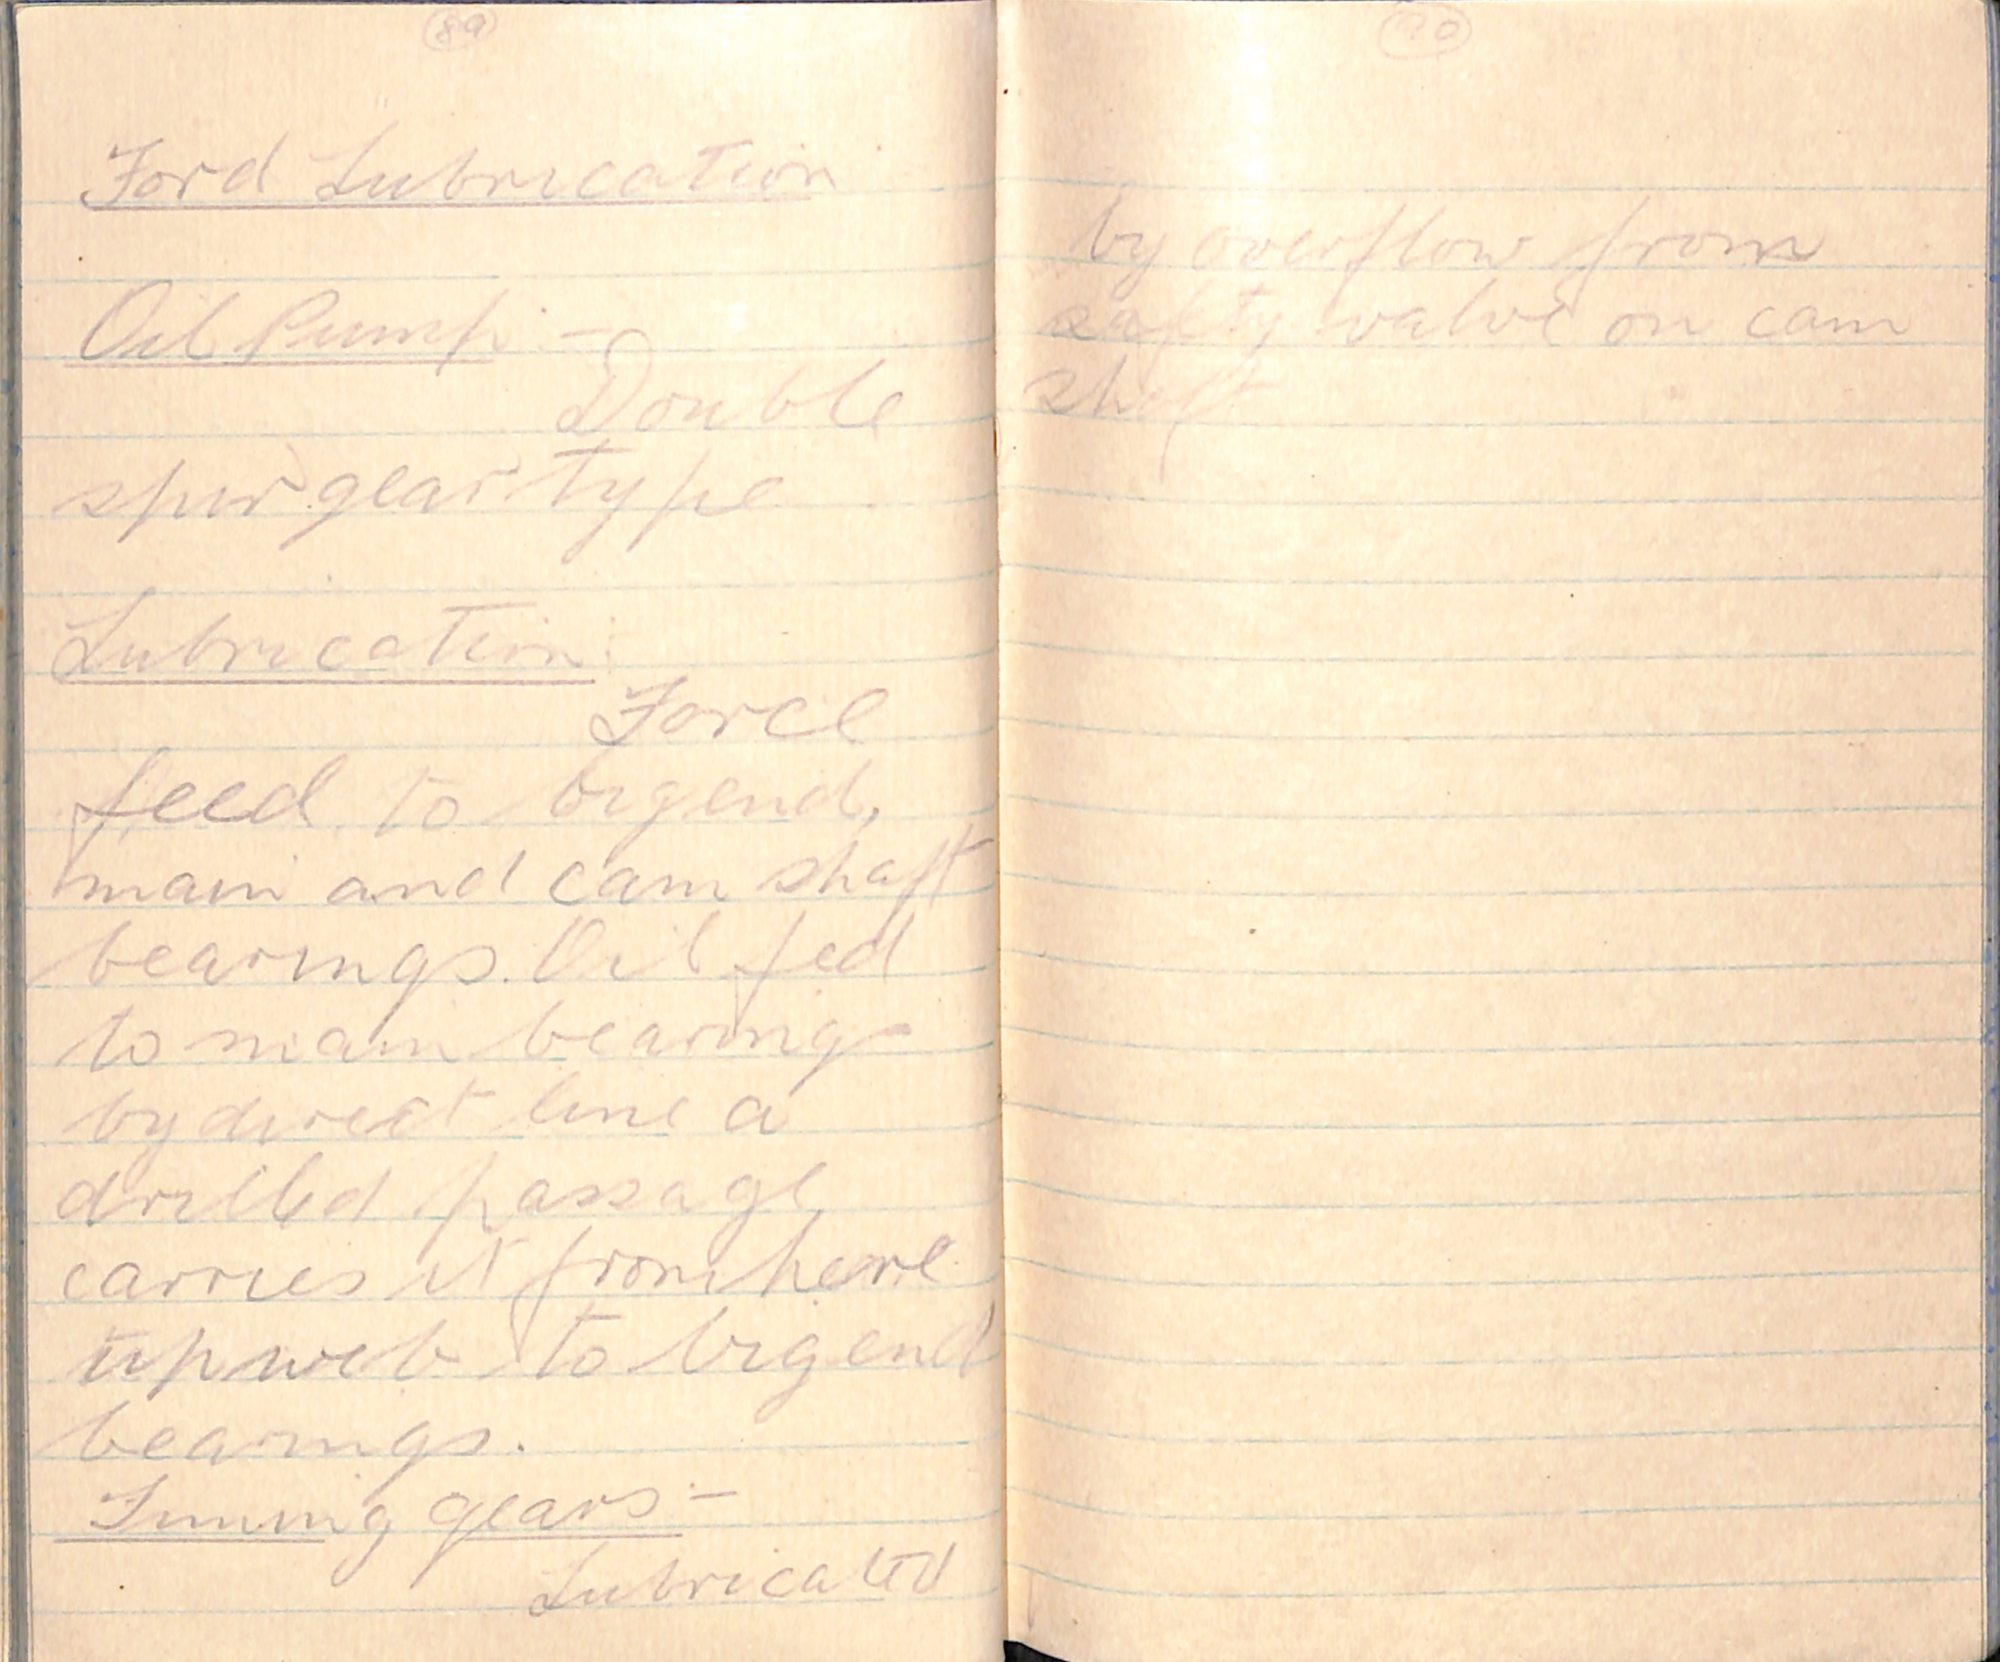 89
Ford Lubrication
Oil Pump :-
Double
spur gear type
Lubrication:
Force
feed to bigend,
main and cam shaft
bearings. Oil fed
to main bearings
by direct line a
drilled passage
carries it from here
up web to bigend
bearings.
Timing gears:-
Lubricated
90
by overflow from
safety valve on cam
shaft